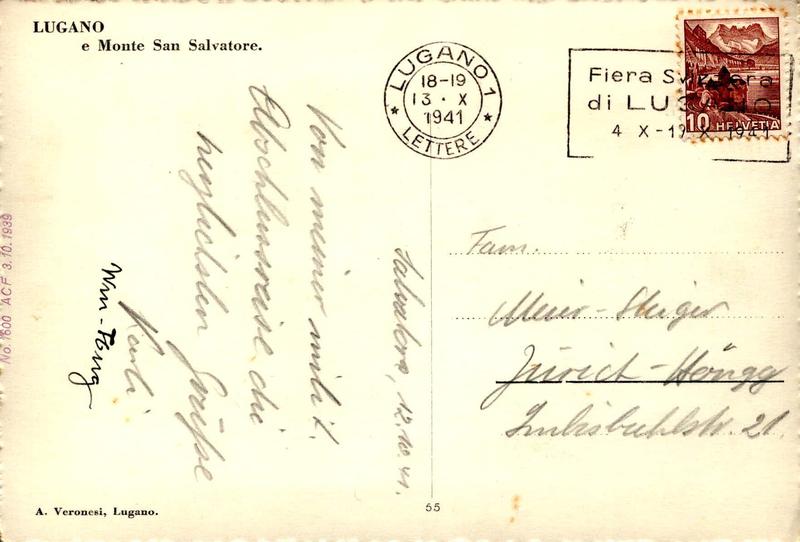 LUGANO
e Monte San Salvatore.
LUGANO 1
18-19
13·X
1941
LETTERE
Fiera Svizzera
di LUGANO
4 X-19 X 1941
10 HELVETIA
Salvatore, 12.10.41.
Von meiner milit.
Abschlussreise die
herzlichsten Grüsse
Karli
Wm-
Fam.
Meier-Steiger
Zürich-Höngg
Imbisbühlstr. 21.
No. 1600 ACF 3.10.1939
A. Veronesi, Lugano.
55